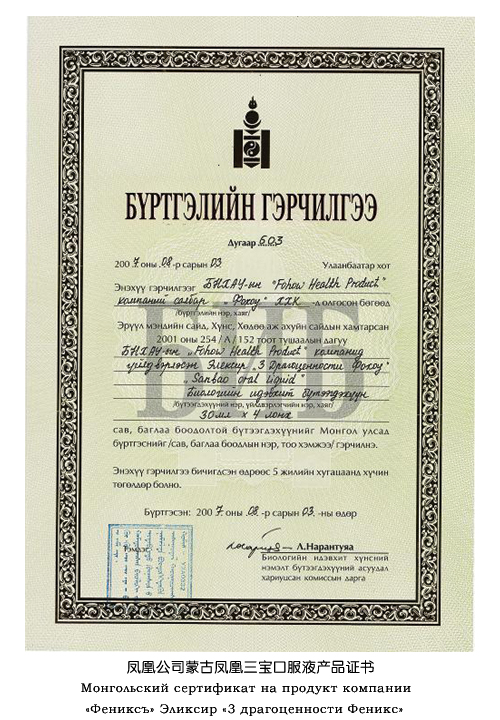 БҮРТГЭЛИЙН ГЭРЧИЛГЭЭ
Дугаар 603
2007 оны 08-р сарын 03 Улаанбаатар хот
Энэхүү гэрчилгээг БНХАУ-ын "Fohow Health Product"
компаний салбар "Фохоу" ХХК -д олгосон бөгөөд
/бүртгэлийн нэр, хаяг/
Эрүүл мэндийн сайд, Хүнс, Хөдөө аж ахуйн сайдын хамтарсан
2001 оны 254 / А / 152 тоот тушаалын дагуу
БНХАУ-ын "Fohow Health Product" компанид
үйлдвэрлэсэн Элексир "3 Драгоценности Фохоу"
"Sanbao oral liquid"
Биологийн идэвхит бүтээгдэхүүн
/бүтээгдэхүүний нэр, үйлдвэрлэгчийн нэр, хаяг/
30мл x 4 лонх
сав, баглаа боодолтой бүтээгдэхүүнийг Монгол улсад
бүртгэснийг /сав, баглаа боодлын нэр, тоо хэмжээ/ гэрчилнэ.
Энэхүү гэрчилгээ бичигдсэн өдрөөс 5 жилийн хугацаанд хүчин
төгөлдөр болно.
Бүртгэсэн: 2007 оны 08-р сарын 03-ны өдөр
Тэмдэг
Л.Нарантуяа
Биологийн идэвхит хүнсний
нэмэлт бүтээгдэхүүний асуудал
хариуцсан комиссын дарга
凤凰公司蒙古凤凰三宝口服液产品证书
Монгольский сертификат на продукт компании
«Фениксъ» Эликсир «3 драгоценности Феникс»